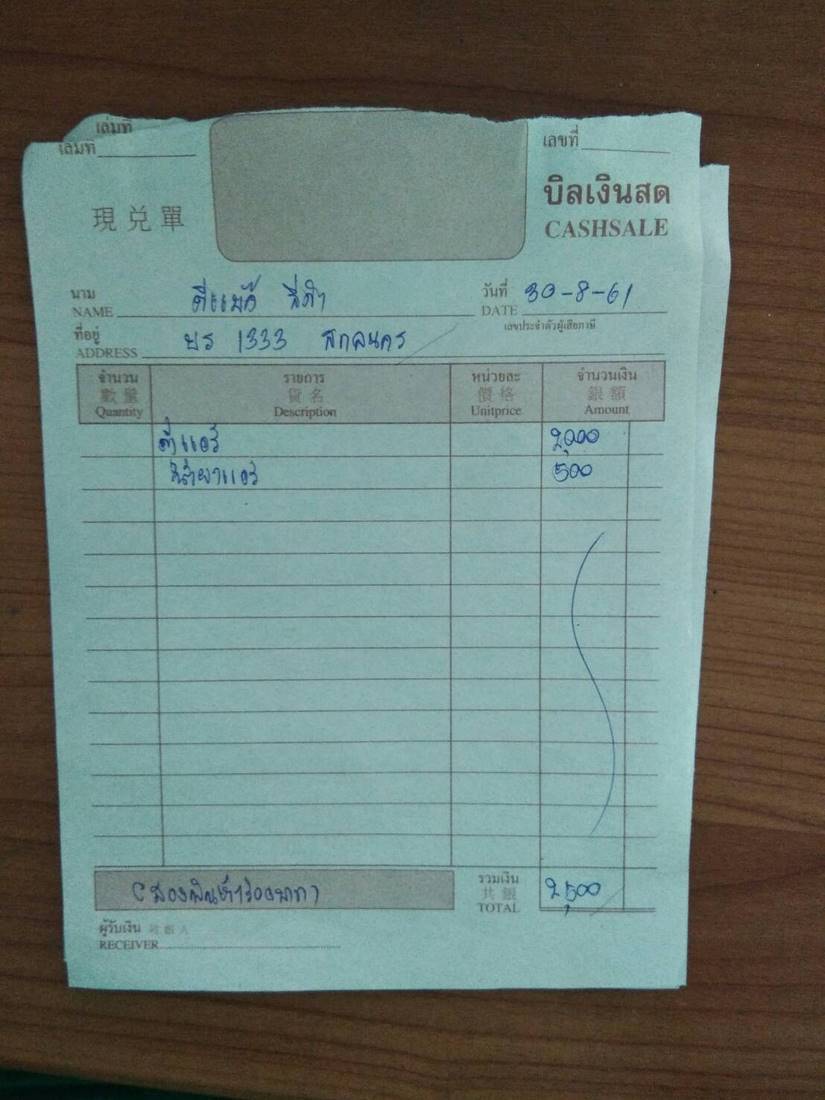 เล่มที่
เล่มที่ เลขที่
現兌單 บิลเงินสด
CASHSALE
นาม วันที่ 30-8-61
NAME DATE
ที่อยู่ เลขประจำตัวผู้เสียภาษี
ADDRESS 1333 สกลนคร
จำนวน รายการ หน่วยละ จำนวนเงิน
數量 貨名 價格 銀額
Quantity Description Unitprice Amount
ตู้แอร์ 2,000
500
(สองพันห้าร้อยบาท) รวมเงิน 2,500
共銀
TOTAL
ผู้รับเงิน
RECEIVER